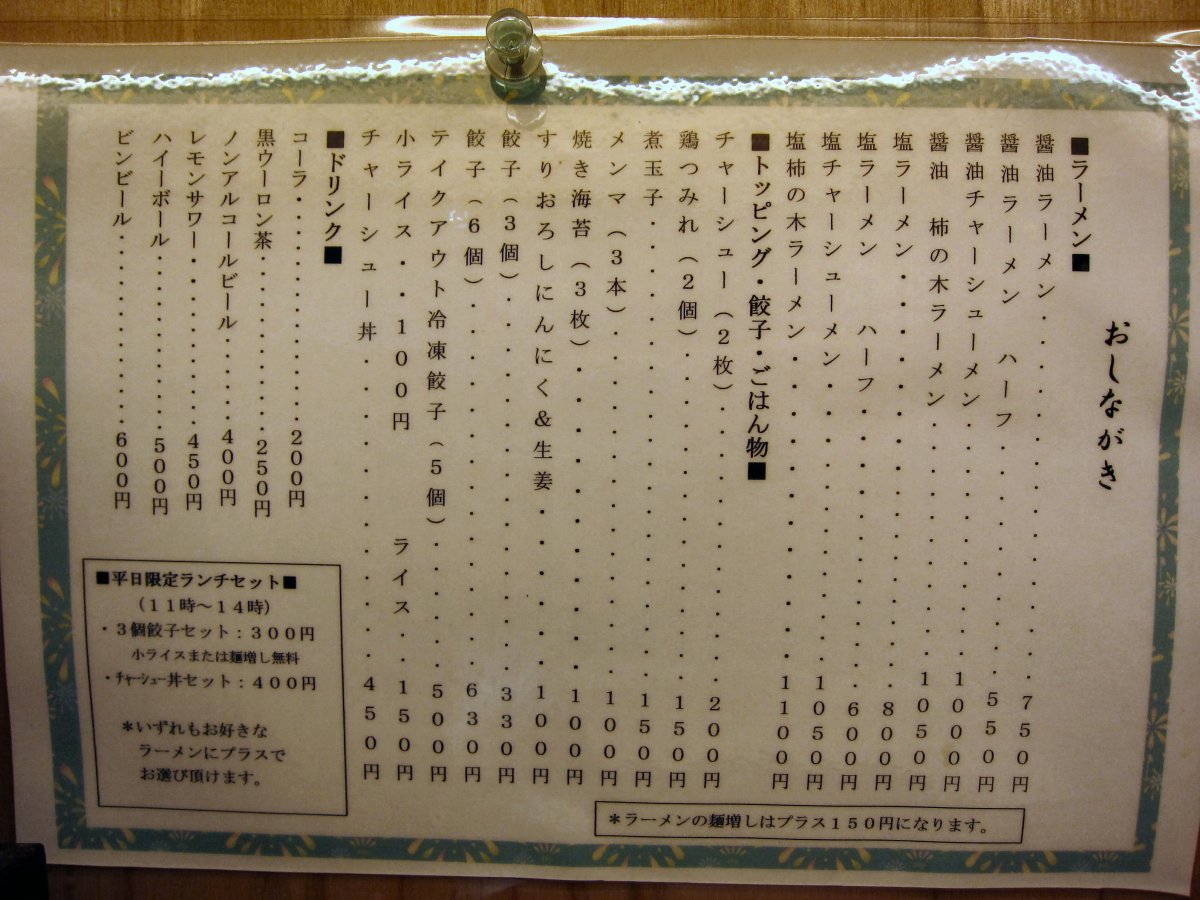 おしながき
■ラーメン■
醤油ラーメン・・・・・・・・・・・・750円
醤油ラーメン　ハーフ・・・・・・・・550円
醤油チャーシューメン・・・・・・・・1000円
醤油　柿の木ラーメン・・・・・・・・1050円
塩ラーメン・・・・・・・・・・・・・800円
塩ラーメン　ハーフ・・・・・・・・・600円
塩チャーシューメン・・・・・・・・・1050円
塩柿の木ラーメン・・・・・・・・・・1100円
■トッピング・餃子・ごはん物■
チャーシュー（2枚）・・・・・・・・200円
鶏つみれ（2個）・・・・・・・・・・150円
煮玉子・・・・・・・・・・・・・・・150円
メンマ（3本）・・・・・・・・・・・100円
焼き海苔（3枚）・・・・・・・・・・100円
すりおろしにんにく＆生姜・・・・・・100円
餃子（3個）・・・・・・・・・・・・330円
餃子（6個）・・・・・・・・・・・・630円
テイクアウト冷凍餃子（5個）・・・・500円
小ライス・・100円　ライス・・・150円
チャーシュー丼・・・・・・・・・・・450円
■ドリンク■
コーラ・・・・・・・・・・200円
黒ウーロン茶・・・・・・・250円
ノンアルコールビール・・・400円
レモンサワー・・・・・・・450円
ハイーボール・・・・・・・500円
ビンビール・・・・・・・・600円
■平日限定ランチセット■
（11時～14時）
・3個餃子セット：300円
小ライスまたは麺増し無料
・ﾁｬｰｼｭｰ丼セット：400円
＊いずれもお好きな
ラーメンにプラスで
お選び頂けます。
＊ラーメンの麺増しはプラス150円になります。